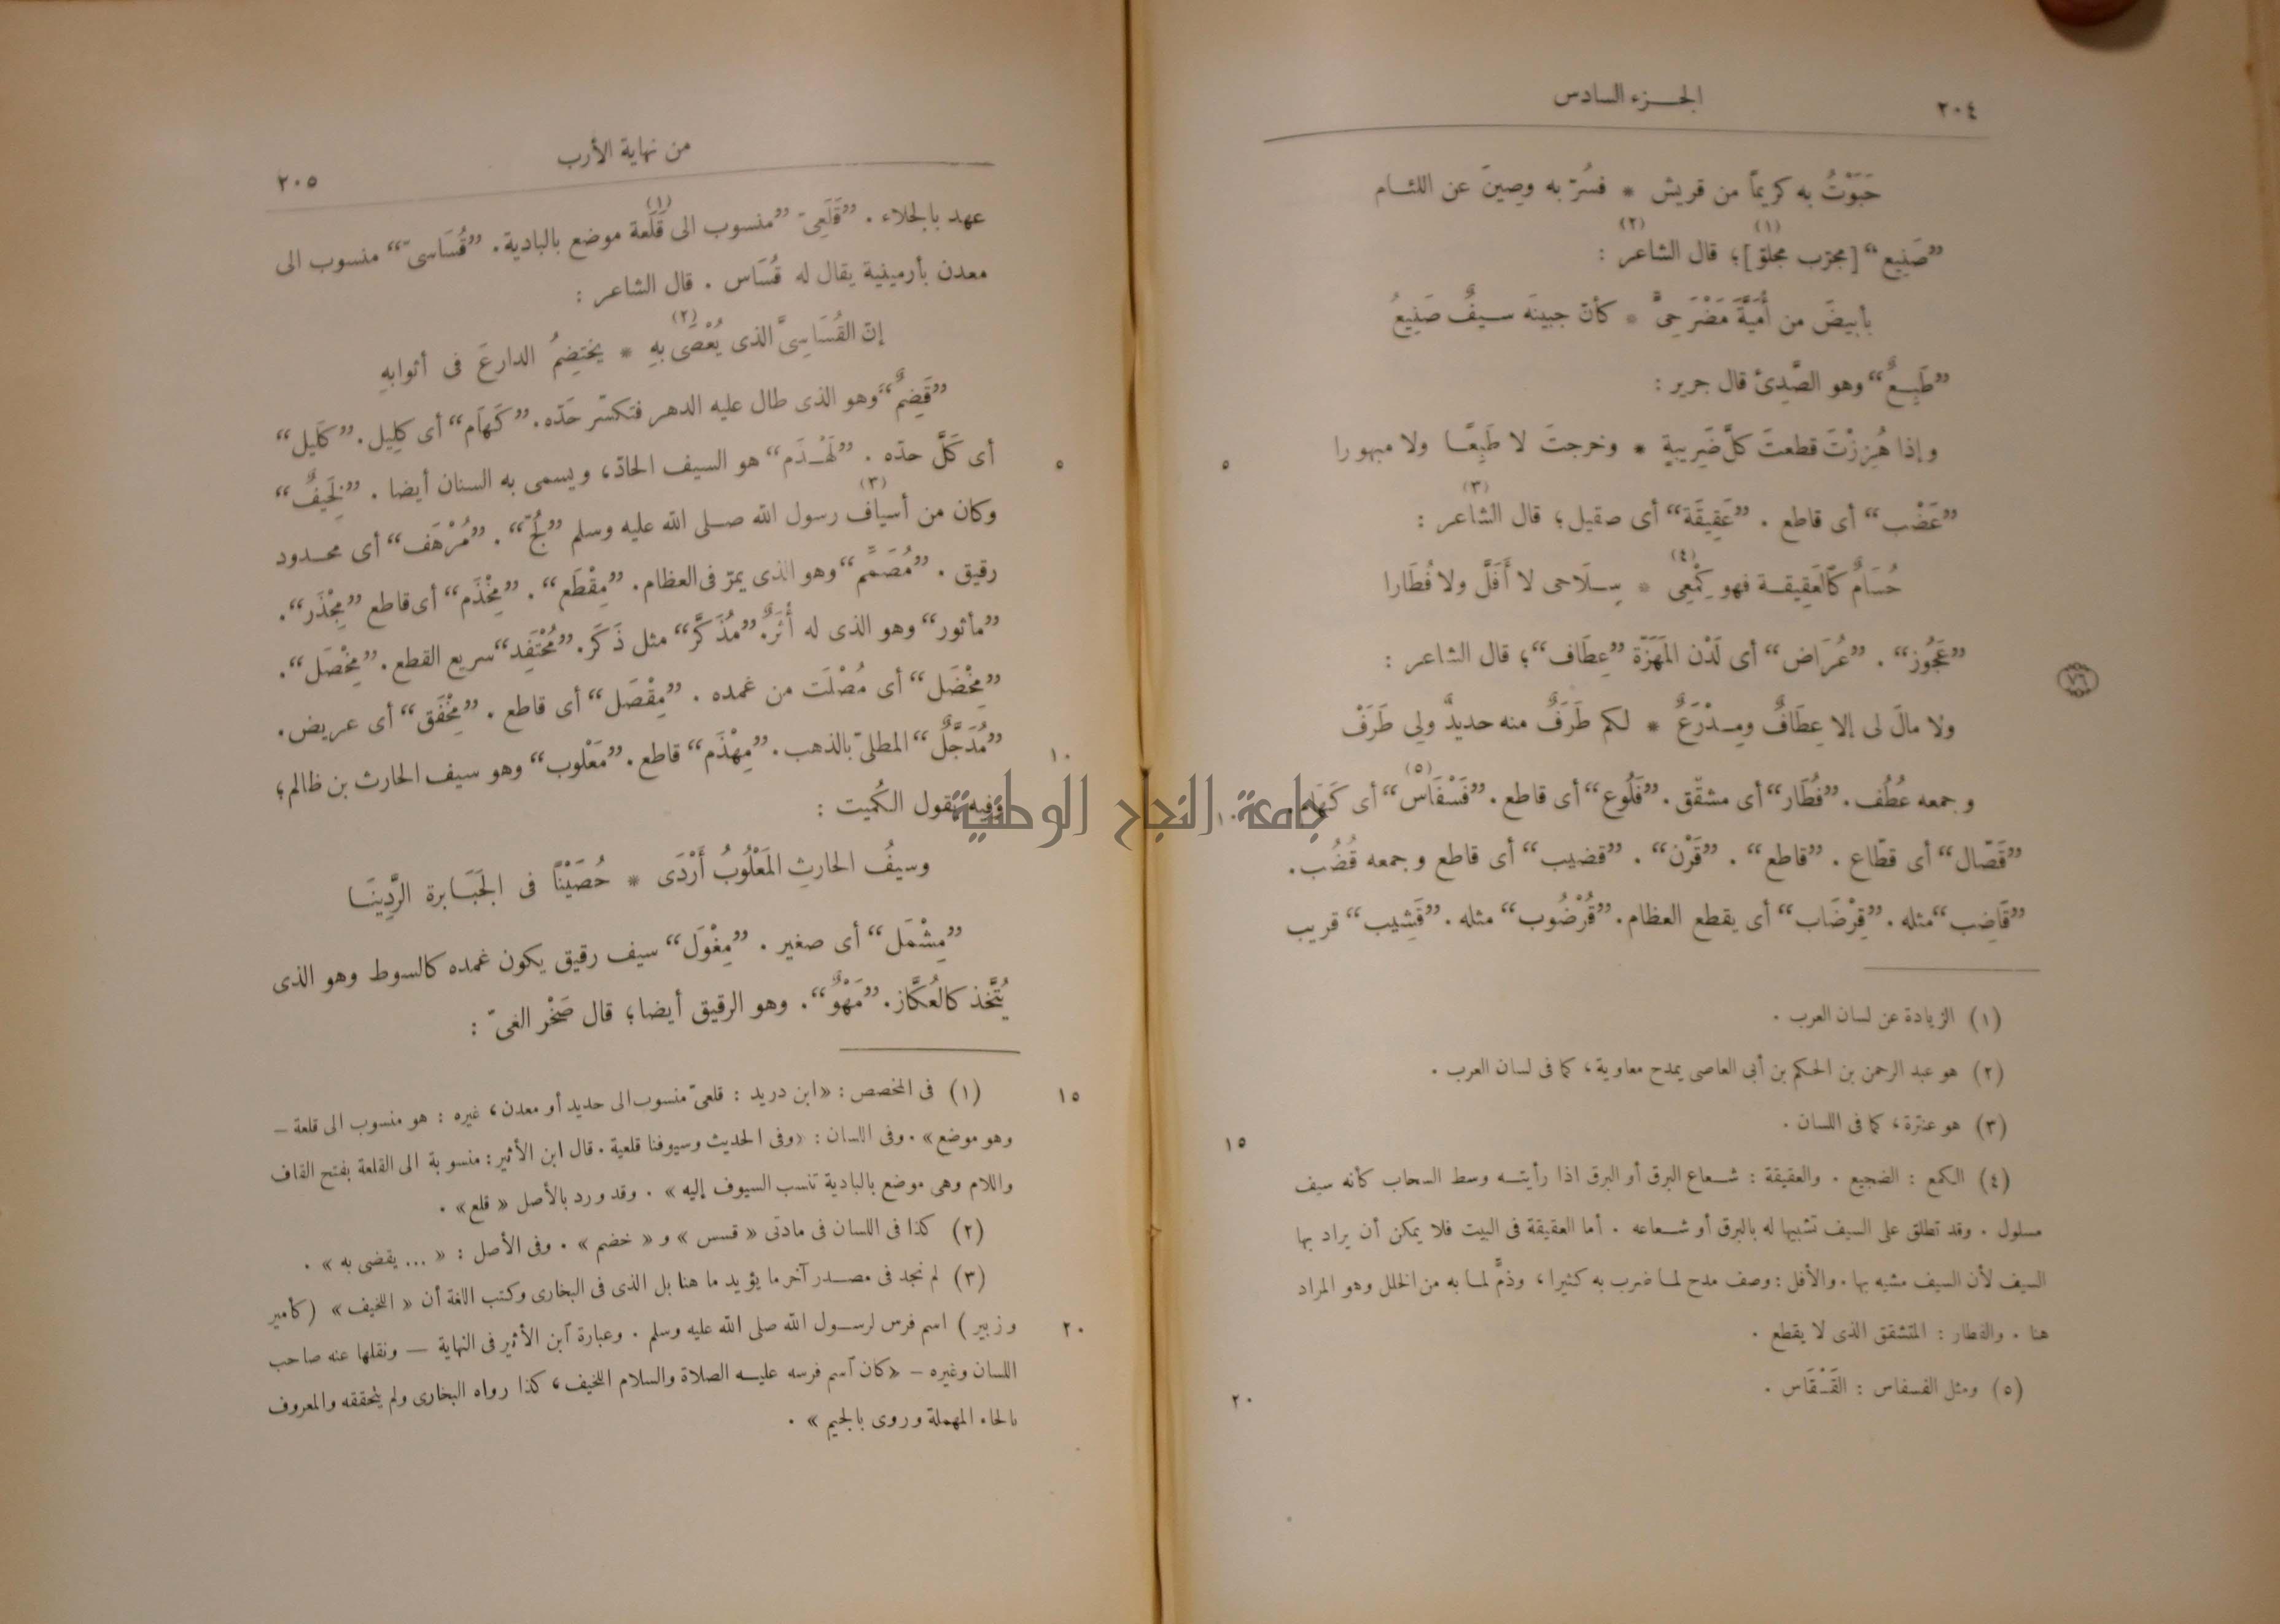 ٢٠٤
الجـزء السادس
حَبَوْتُ به كريماً من قريش * فسُرّ به وصِينَ عن اللئام
”صَنِيع“ [مجرّب مجلوّ](١)؛ قال الشاعر(٢) :
بأبيضَ من أُمَيَّةَ مَضْرَحِىٍّ * كأنّ جبينَه سيفٌ صَنِيعُ
”طَبِعٌ“ وهو الصَّدِئ قال جرير :
وإذا هُزِزْتَ قطعتَ كلَّ ضَرِيبةٍ * وخرجتَ لا طَبِعًا ولا مبهورا
٥
”عَضْب“ أى قاطع . ”عَقِيقَة“ أى صقيل؛ قال الشاعر(٣) :
حُسَامٌ كالعَقِيقة فهو كِمْعِى(٤) * سِلَاحى لا أَفَلَّ ولا فُطَارا
”عَجُوز“ . ”عُرَاض“ أى لَدْن المَهَزّة ”عِطَاف“؛ قال الشاعر :
٧٦
ولا مالَ لى إلا عِطَافٌ ومِدْرَعٌ * لكم طَرَفٌ منه حديدٌ ولِى طَرَفْ
وجمعه عُطُف. ”فُطَار“ أى مشقّق. ”فَلُوع“ أى قاطع. ”فَسْفَاس“(٥) أى كَهَام.
١٠
”قَصّال“ أى قطّاع . ”قاطع“ . ”قَرْن“ . ”قضيب“ أى قاطع وجمعه قُضُب.
”قَاضِب“ مثله. ”قِرْضَاب“ أى يقطع العظام. ”قُرْضُوب“ مثله. ”قَشِيب“ قريب
(١) الزيادة عن لسان العرب .
(٢) هو عبد الرحمن بن الحكم بن أبى العاصى يمدح معاوية، كما فى لسان العرب .
(٣) هو عنترة، كما فى اللسان .
١٥
(٤) الكمع : الضجيع . والعقيقة : شعاع البرق أو البرق اذا رأيته وسط السحاب كأنه سيف
مسلول . وقد تطلق على السيف تشبيها له بالبرق أو شعاعه . أما العقيقة فى البيت فلا يمكن أن يراد بها
السيف لأن السيف مشبه بها . والأفل : وصف مدح لما ضرب به كثيرا، وذمّ لما به من الخلل وهو المراد
هنا . والفطار : المتشقق الذى لا يقطع .
(٥) ومثل الفسفاس : القَسْقَاس .
٢٠
من نهاية الأرب
٢٠٥
عهد بالجلاء . ”قَلَعِىّ“ منسوب الى قَلَعة(١) موضع بالبادية. ”قُسَاسىّ“ منسوب الى
معدن بأرمينية يقال له قُسَاس . قال الشاعر :
إنّ القُسَاسِىَّ الذى يُعْصَى بهِ(٢) * يختضِمُ الدارعَ فى أثوابهِ
”قَضِمٌ“ وهو الذى طال عليه الدهر فتكسّر حَدّه. ”كَهَام“ أى كليل. ”كَليل“
أى كَلَّ حدّه . ”لَهْذَم“ هو السيف الحادّ، ويسمى به السنان أيضا . ”لَخِيفٌ“
٥
وكان من أسياف(٣) رسول الله صلى الله عليه وسلم ”لُجّ“ . ”مُرْهَف“ أى محدود
رقيق . ”مُصَمِّم“ وهو الذى يمرّ فى العظام. ”مِقْطَع“ . ”مِخْذَم“ أى قاطع ”مِجْذَر“.
”مأثور“ وهو الذى له أَثَرٌ. ”مُذَكَّر“ مثل ذَكَر. ”مُحْتَفِد“ سريع القطع. ”مِخْصَل“.
”مِخْضَل“ أى مُصْلَت من غمده . ”مِقْصَل“ أى قاطع . ”مِخْفَق“ أى عريض.
”مُدَجَّلٌ“ المطلىّ بالذهب. ”مِهْذَم“ قاطع. ”مَعْلوب“ وهو سيف الحارث بن ظالم؛
١٠
وفيه يقول الكُميت :
جامعة النجاح الوطنية
وسيفُ الحارثِ المَعْلُوبُ أَرْدَى * حُصَيْنًا فى الجَبَابرة الرَّدِينَا
”مِشْمَل“ أى صغير . ”مِغْوَل“ سيف رقيق يكون غمده كالسوط وهو الذى
يُتَّخذ كالعُكَّاز. ”مَهْوٌ“. وهو الرقيق أيضا؛ قال صَخْر الغىّ :
(١) فى المخصص : «ابن دريد : قلعىّ منسوب الى حديد أو معدن، غيره : هو منسوب الى قلعة —
١٥
وهو موضع» . وفى اللسان : «وفى الحديث وسيوفنا قلعية . قال ابن الأثير : منسوبة الى القلعة بفتح القاف
واللام وهى موضع بالبادية تنسب السيوف إليه» . وقد ورد بالأصل «قلع» .
(٢) كذا فى اللسان فى مادتى «قسس» و «خضم» . وفى الأصل : «... يقضى به» .
(٣) لم نجد فى مصدر آخر ما يؤيد ما هنا بل الذى فى البخارى وكتب اللغة أن «اللخيف» (كأمير
وزبير) اسم فرس لرسول الله صلى الله عليه وسلم . وعبارة ابن الأثير فى النهاية — ونقلها عنه صاحب
٢٠
اللسان وغيره — «كان آسم فرسه عليه الصلاة والسلام اللخيف، كذا رواه البخارى ولم يتحققه والمعروف
بالحاء المهملة وروى بالجيم» .